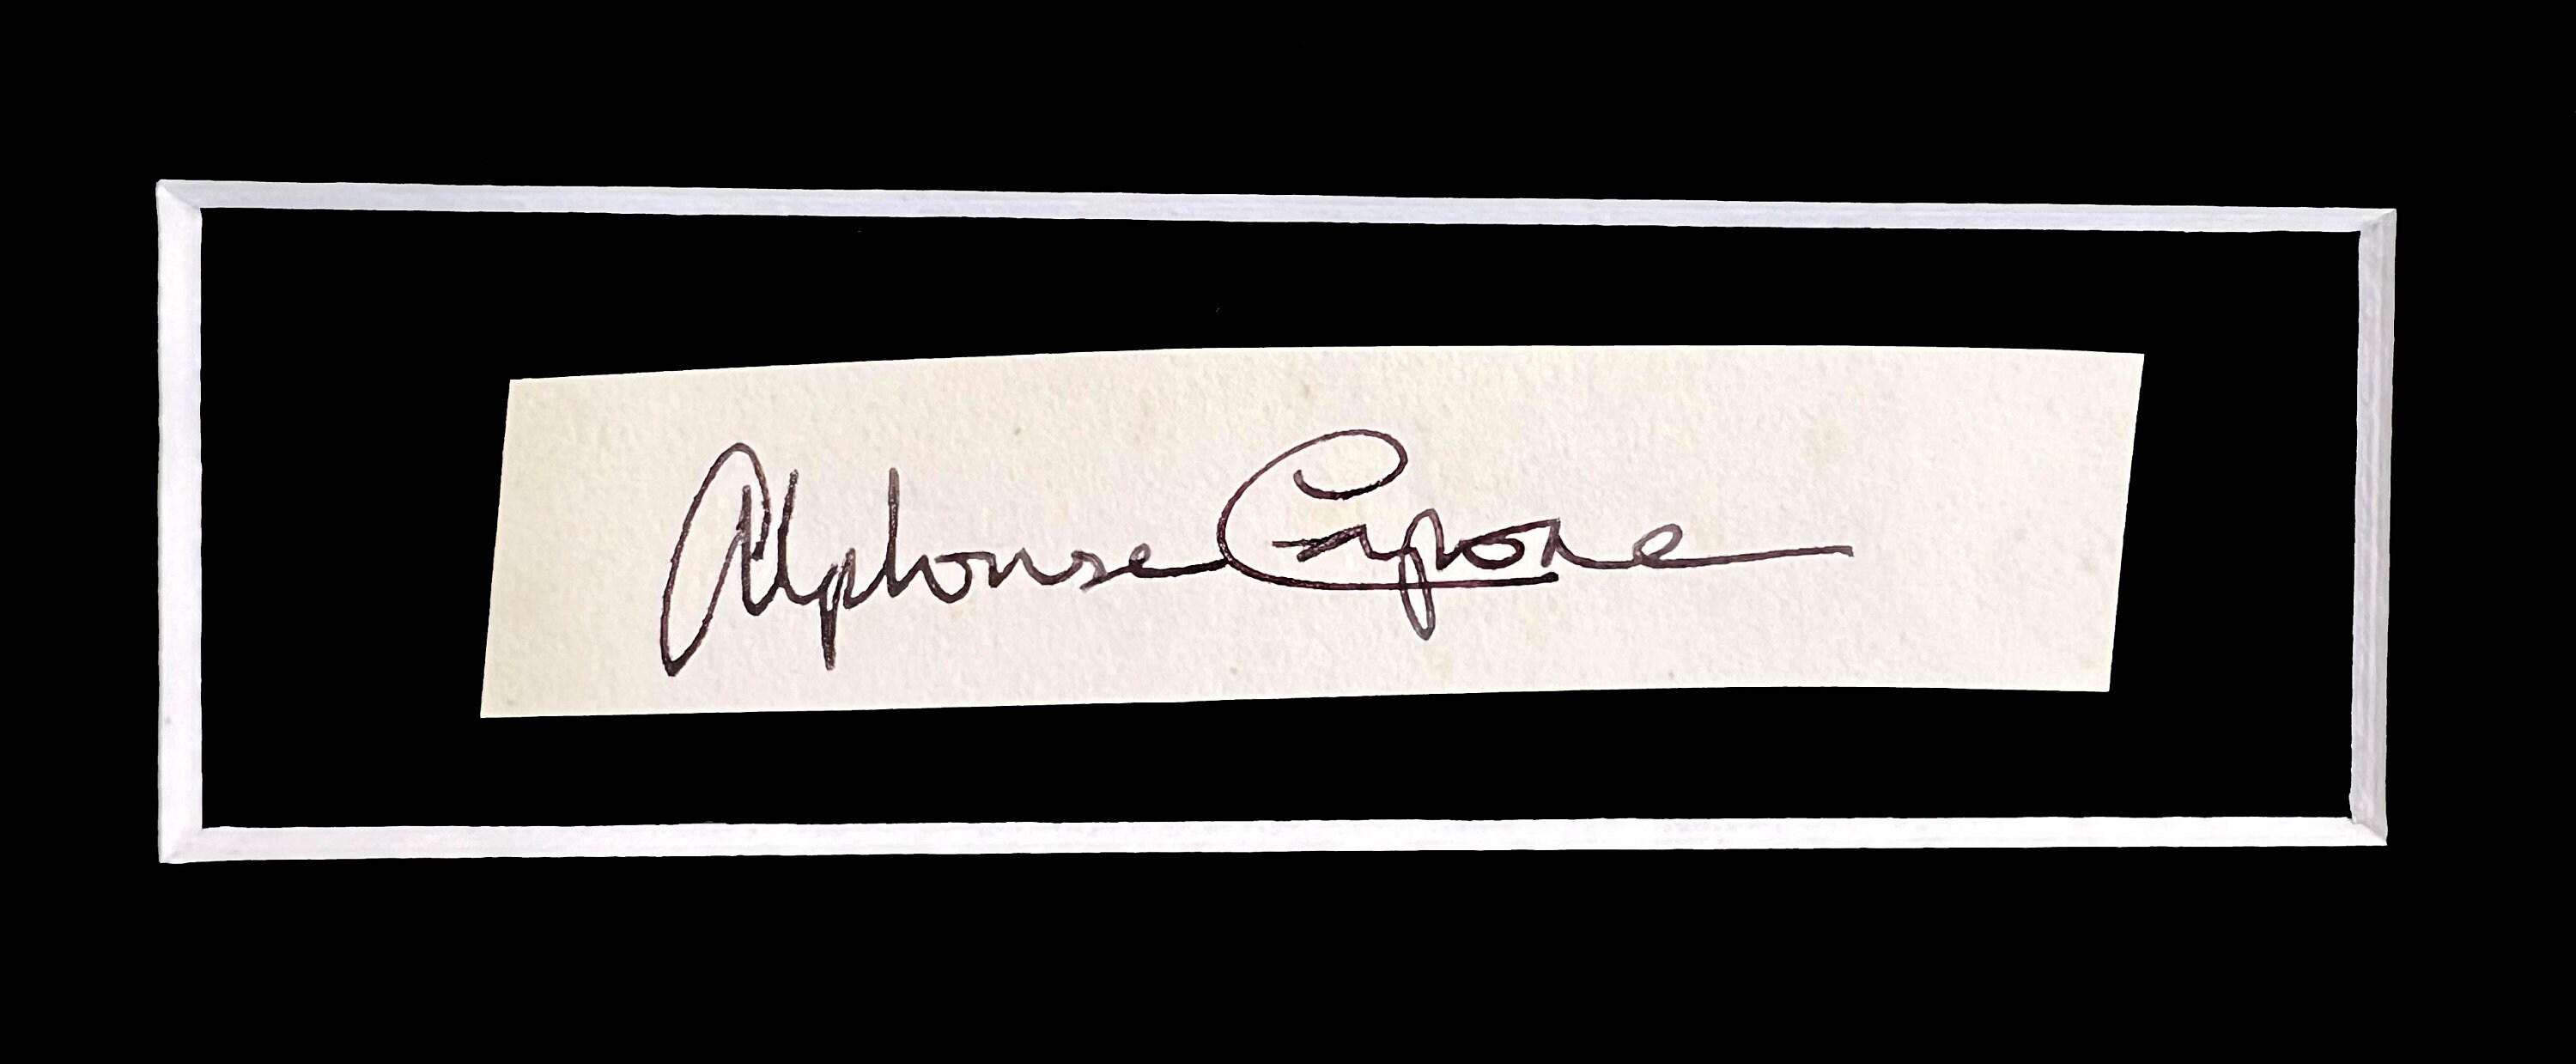 Alphonse Capone